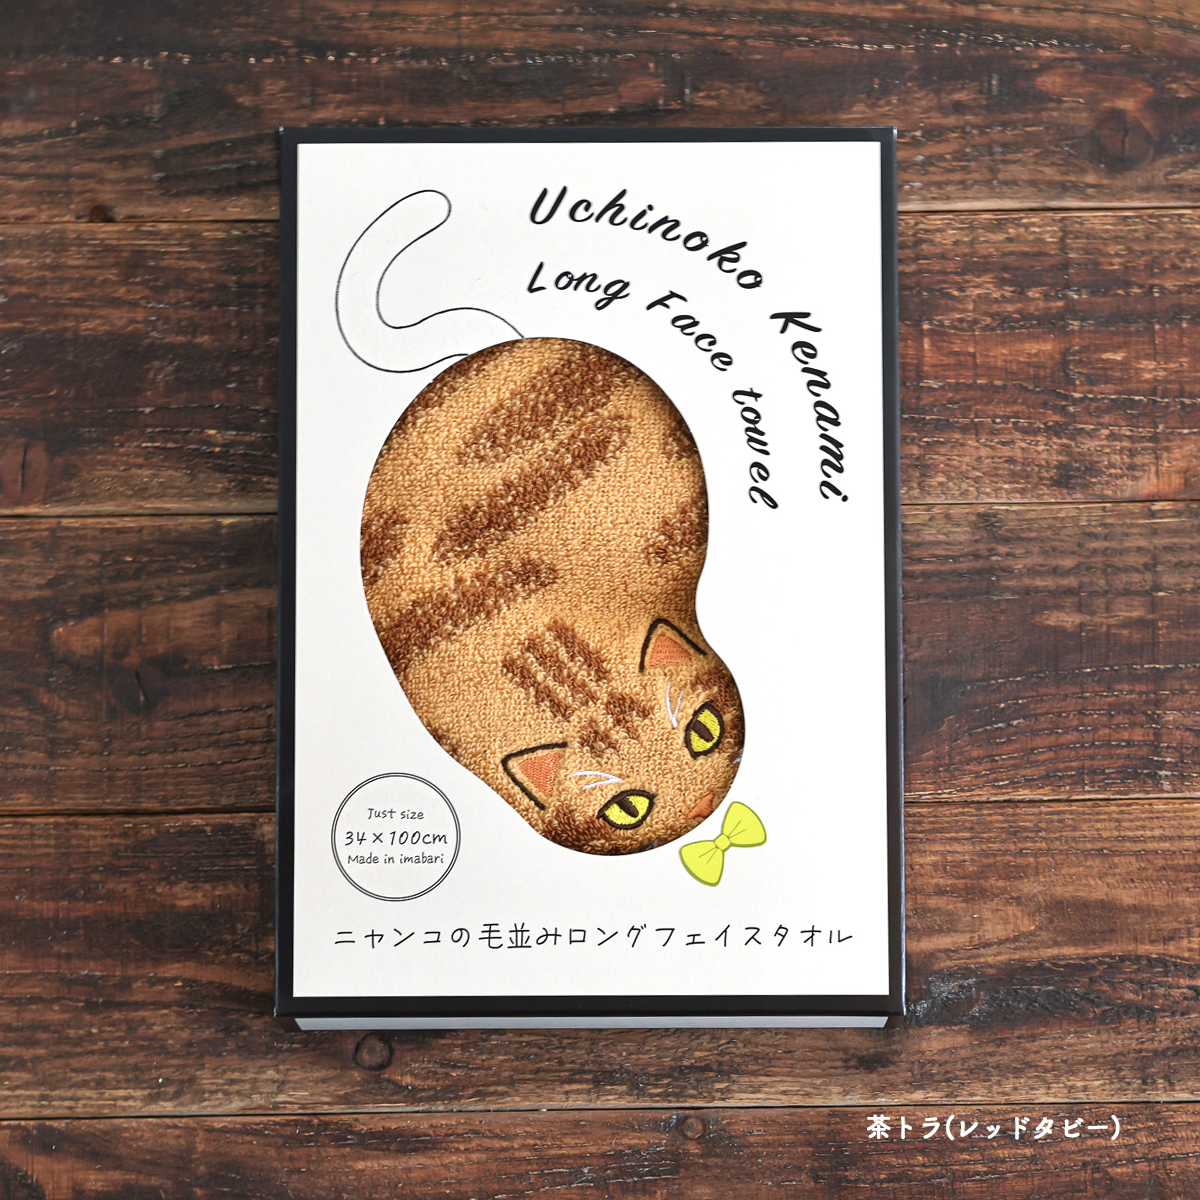 Uchinoko Kenami
Long Face towel
Just size
34×100cm
Made in imabari
ニャンコの毛並みロングフェイスタオル
茶トラ(レッドタビー)